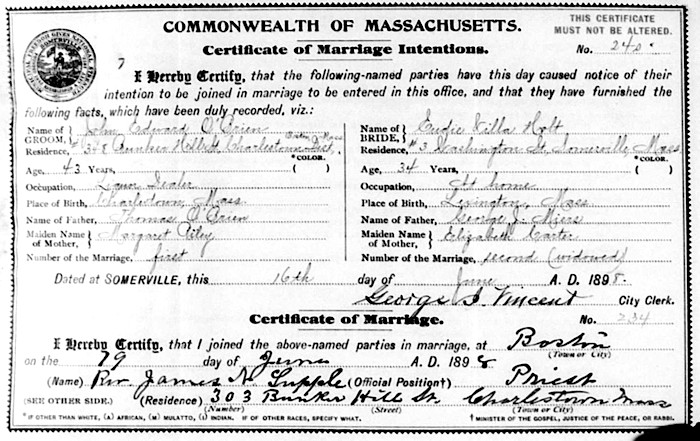 COMMONWEALTH OF MASSACHUSETTS.
THIS CERTIFICATE
MUST NOT BE ALTERED.
Certificate of Marriage Intentions.
No. 240
I Hereby Certify, that the following-named parties have this day caused notice of their
intention to be joined in marriage to be entered in this office, and that they have furnished the
following facts, which have been duly recorded, viz.:
Name of GROOM, John Edward O'Brien
Residence, # 348 Bunker Hill St, Charlestown Dist, Boston Mass
*COLOR.
Age, 43 Years, ( )
Occupation, Liquor Dealer
Place of Birth, Charlestown, Mass
Name of Father, Thomas O'Brien
Maiden Name of Mother, Margaret
Number of the Marriage, first
Name of BRIDE, Villa Holt
Residence, # 3 Washington St, Somerville, Mass
*COLOR.
Age, 34 Years, ( )
Occupation, At home
Place of Birth, Lexington, Mass
Name of Father, George J. Miers
Maiden Name of Mother, Elizabeth Carter
Number of the Marriage, second (widowed)
Dated at SOMERVILLE, this 16th day of June A. D. 1898.
George I. Vincent City Clerk.
Certificate of Marriage.
No. 234
I Hereby Certify, that I joined the above-named parties in marriage, at Boston
(Town or City)
on the 29 day of June A. D. 1898
(Name) Rev. James N. Supple (Official Position†) Priest
(SEE OTHER SIDE.) (Residence) 303 Bunker Hill St. Charlestown Mass
(Number) (Street) (Town or City)
*IF OTHER THAN WHITE, (A) AFRICAN, (M) MULATTO, (I) INDIAN. IF OF OTHER RACES, SPECIFY WHAT.
† MINISTER OF THE GOSPEL, JUSTICE OF THE PEACE, OR RABBI.